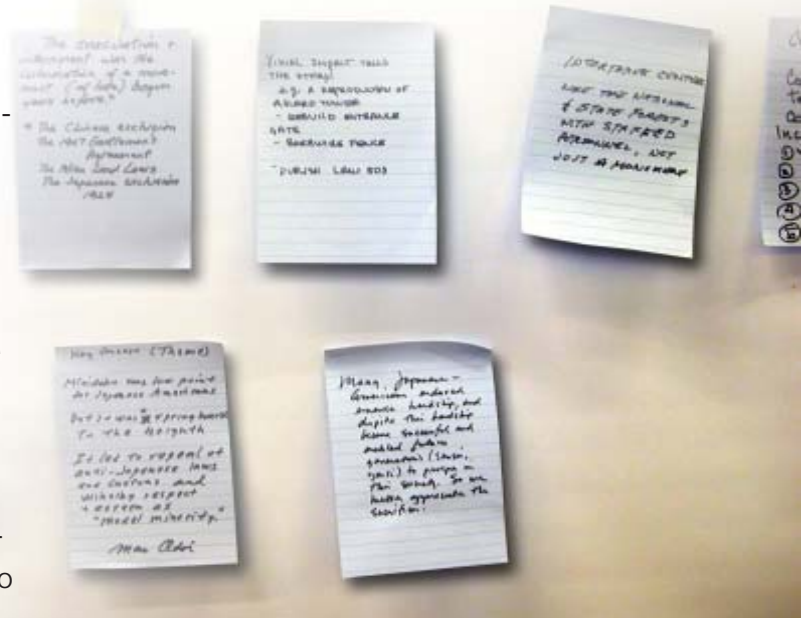 The evacuation +
internment was the
culmination of a move-
ment (of hate) begun
years before."
* The Chinese exclusion
The 1907 Gentlemen's
Agreement
The Alien Land Laws
The Japanese exclusion
1924
VISUAL IMPACT TELLS
THE STORY!
e.g. A REPRODUCTION OF
A GUARD TOWER
- REBUILD ENTRANCE
GATE
- BARBWIRE FENCE
- FURNISH
INTERPRETIVE CENTER
LIKE THE NATIONAL
& STATE FORESTS
WITH STAFFED
PERSONNEL, NOT
JUST A MONUMENT
Inc
①
②
③
④
⑤
Key (Theme)
Minidoka was low point
for Japanese Americans
But it was a spring board
to the heighth
It led to repeal of
anti-Japanese laws
and customs and
winning respect
+ esteem as
"model minority."
Many Japanese-
Americans endured
immense hardship, and
despite this hardship
became successful and
enabled future
generations (Sansei,
Yonsei) to prosper in
this society. So we
better appreciate the
sacrifice.
-
-
o